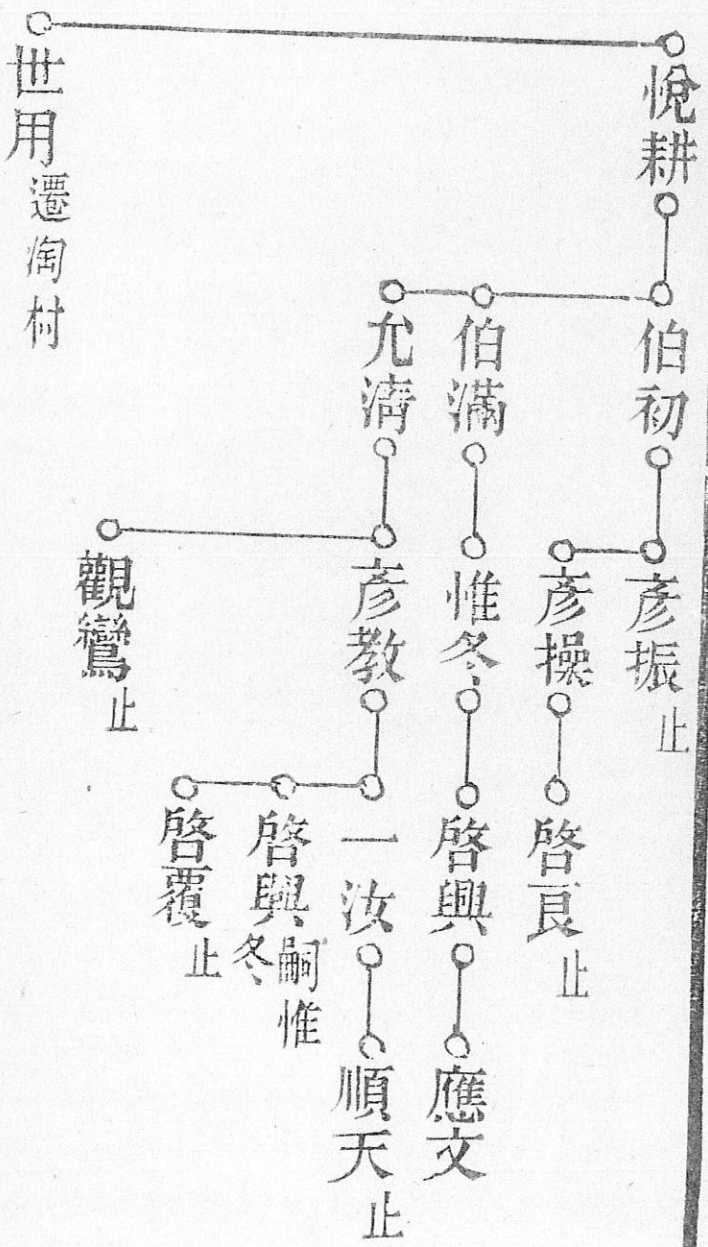 悅耕
伯初
彥振 止
彥操
啓良 止
伯滿
惟冬
啓興
應文
允濟
彥教
一汝
順天 止
啓興 嗣惟冬
啓覆 止
觀鸞 止
世用 遷淘村